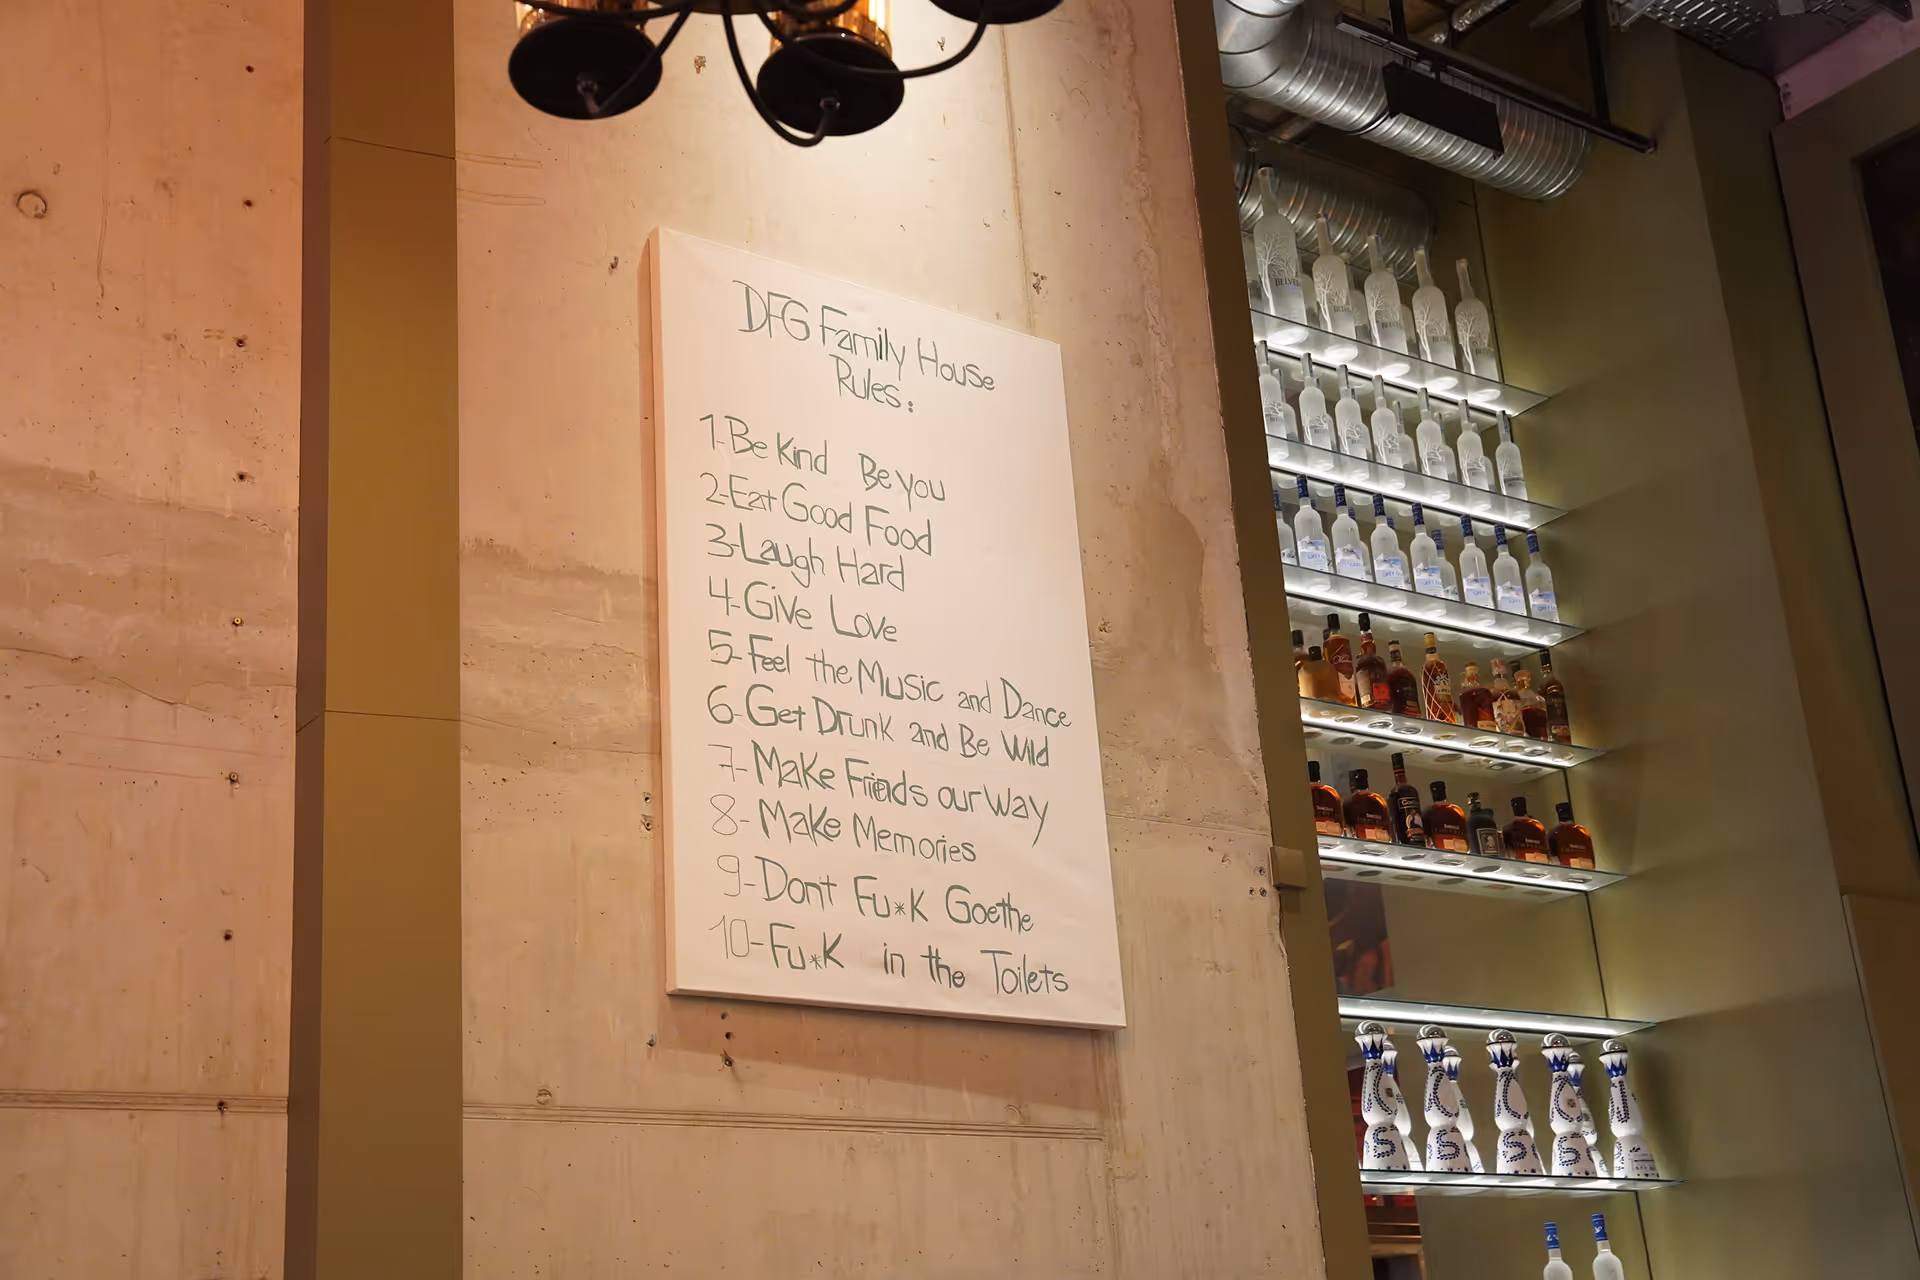 DFG Family House
Rules:
1-Be Kind Be you
2-Eat Good Food
3-Laugh Hard
4-Give Love
5-Feel the Music and Dance
6-Get Drunk and Be Wild
7-Make Friends our Way
8-Make Memories
9-Dont Fu*k Goethe
10-Fu*k in the Toilets